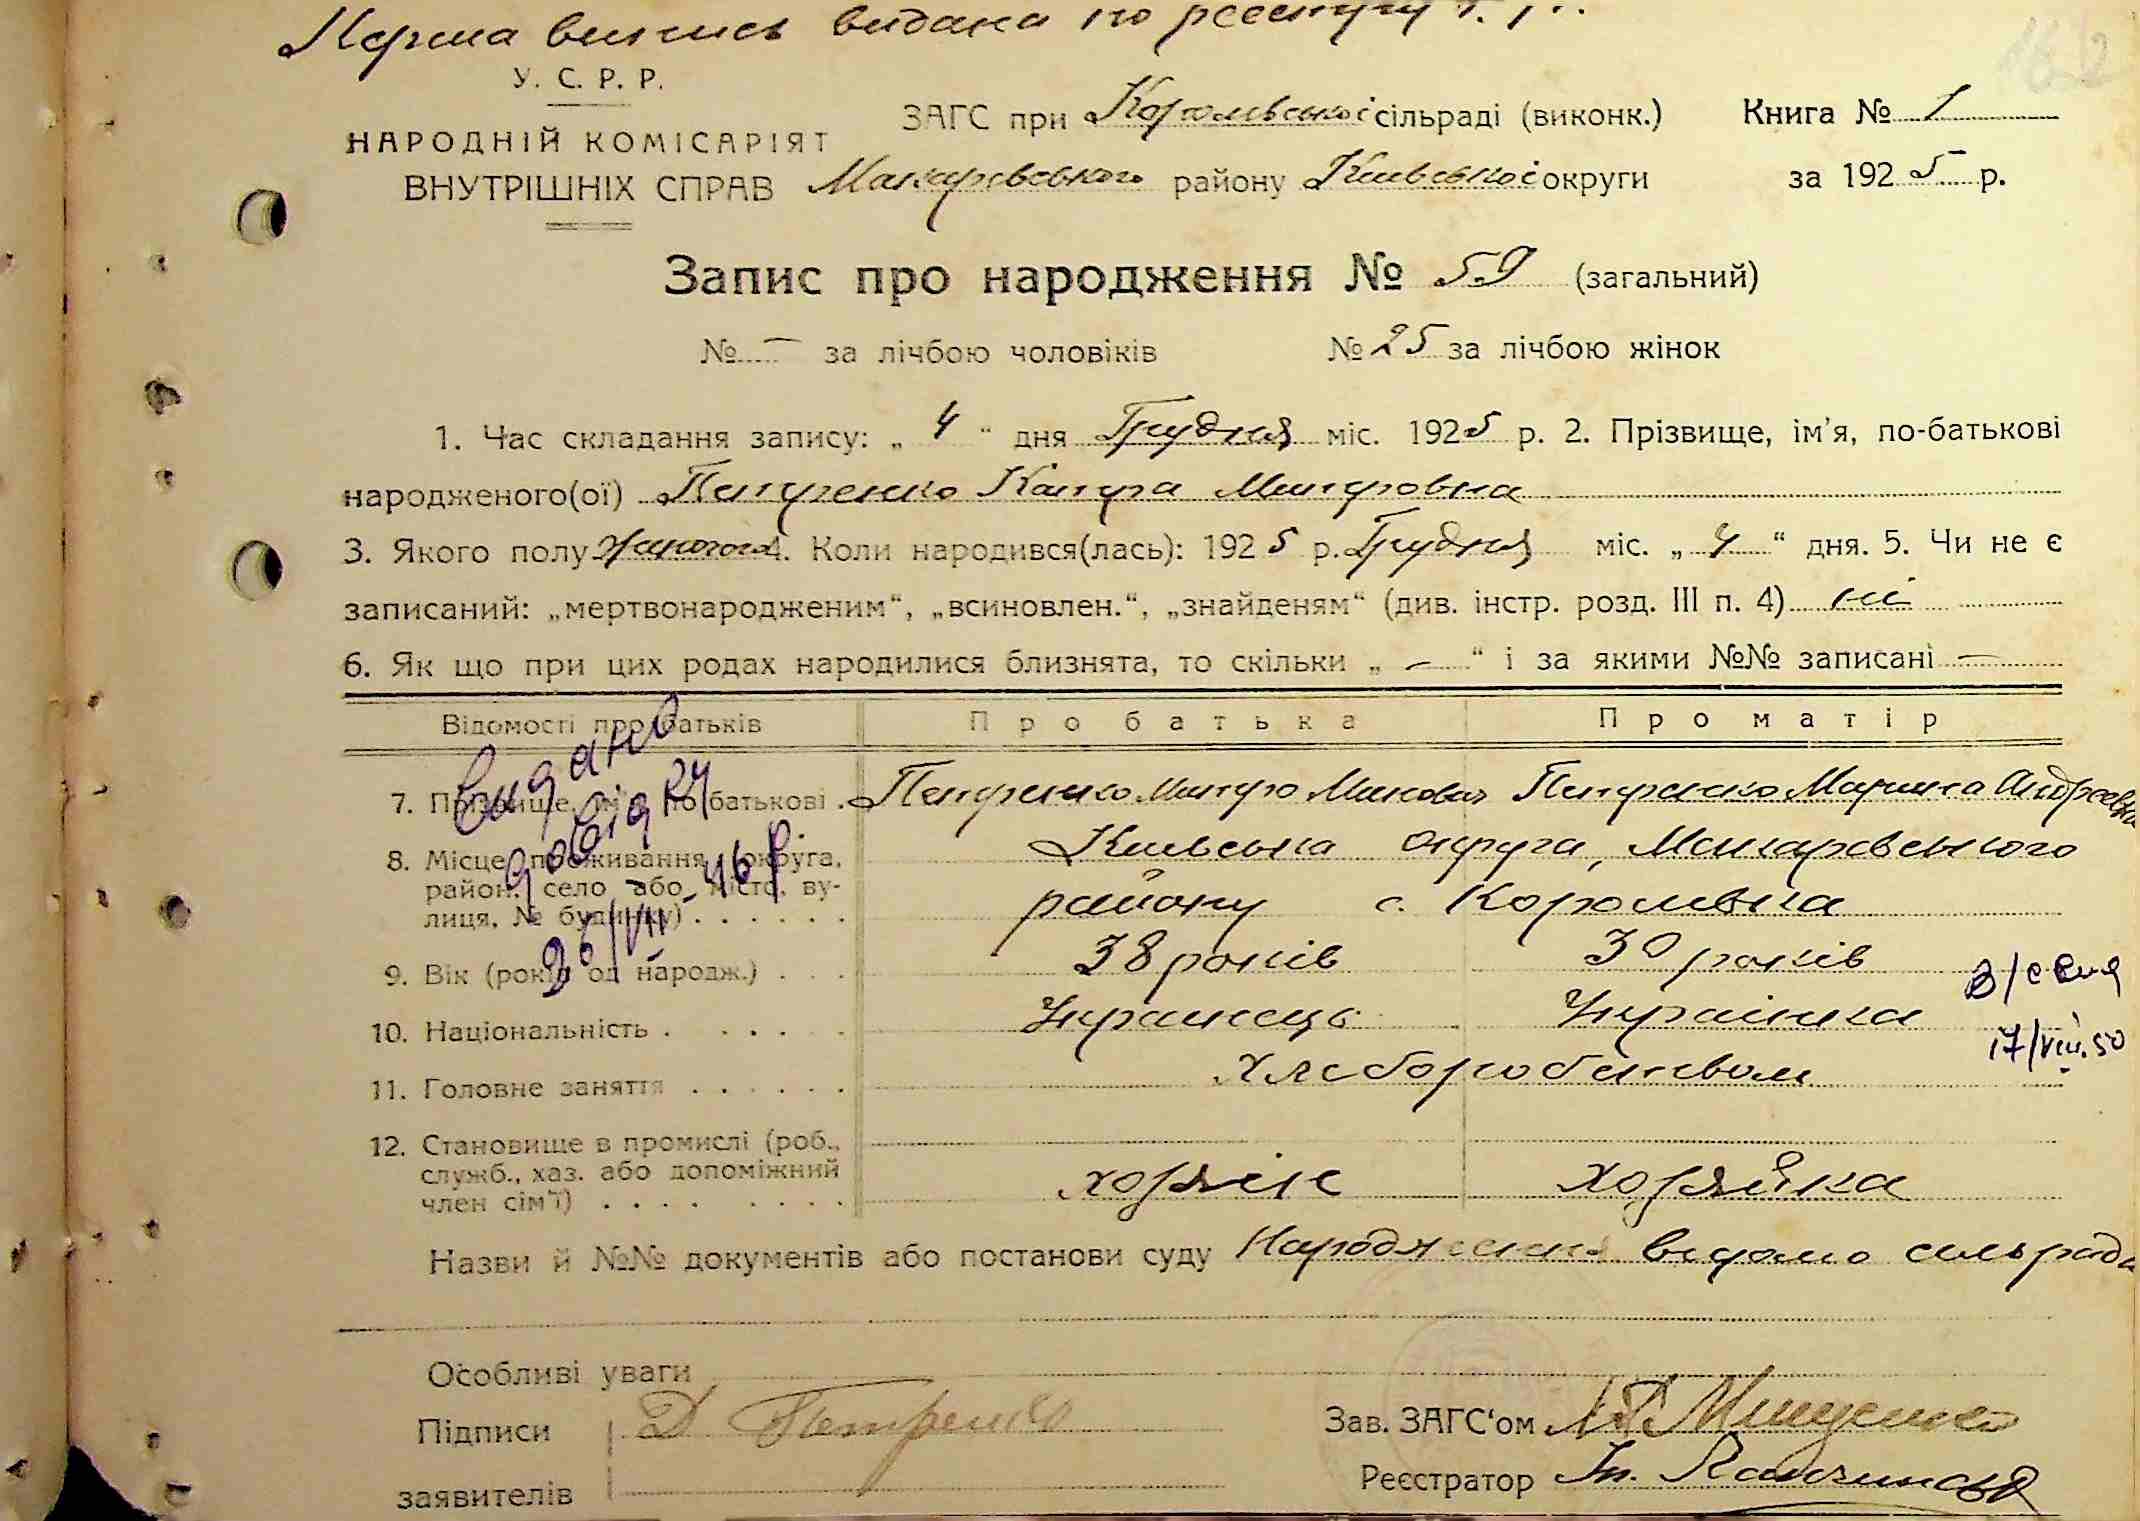 Перша випись видана по реєстру
У. С. Р. Р.
НАРОДНІЙ КОМІСАРІЯТ
ВНУТРІШНІХ СПРАВ
ЗАГС при Королівської сільраді (виконк.) Книга № 1
Макарівського району Київської округи за 1925 р.
Запис про народження № 59 (загальний)
№ – за лічбою чоловіків № 25 за лічбою жінок
1. Час складання запису: „ 4 “ дня Грудня міс. 1925 р. 2. Прізвище, ім'я, по-батькові
народженого(ої)
3. Якого полу жіночого 4. Коли народився(лась): 1925 р. Грудня міс. „ 4 “ дня. 5. Чи не є
записаний: „мертвонародженим“, „всиновлен.“, „знайденям“ (див. інстр. розд. III п. 4) ні
6. Як що при цих родах народилися близнята, то скільки „ – “ і за якими №№ записані –
Відомості про батьків Про батька Про матір
7. Прізвище, ім'я, по-батькові
8. Місце проживання (округа, Київська округа, Макарівського
район, село або місто, ву-
лиця, № будинку) району с. Королівка
9. Вік (років од народж.) 38 років 30 років
10. Національність Українець Українка
11. Головне заняття хліборобством
12. Становище в промислі (роб.,
служб., хаз. або допоміжний
член сім'ї) хозяїн хозяйка
видано
26/VII 46 р.
17/VIII.50
Назви й №№ документів або постанови суду Народження відомо сільраді
Особливі уваги
Підписи Д Петренко
заявителів
Зав. ЗАГС'ом
Реєстратор